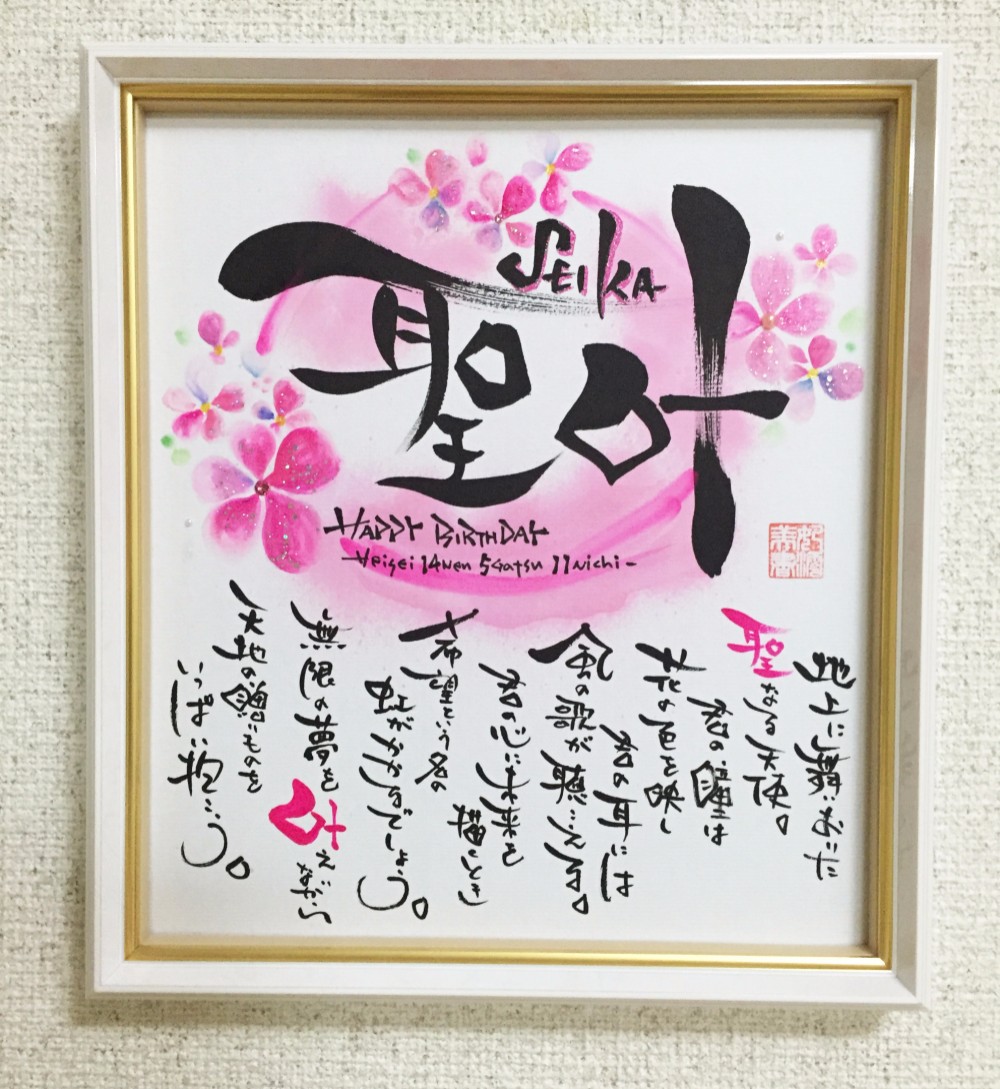 聖叶
SEIKA
HAPPY BIRTHDAY
-Heisei 14nen 5Gatsu 11nichi-
地上に舞いおりた
聖なる天使。
君の瞳は
花の色を映し
君の耳には
風の歌が聴こえる。
君の心に未来を
描くとき
希望という名の
虹がかかるでしょう。
無限の夢を
叶えながら
大地の贈りものを
いっぱい抱こう。